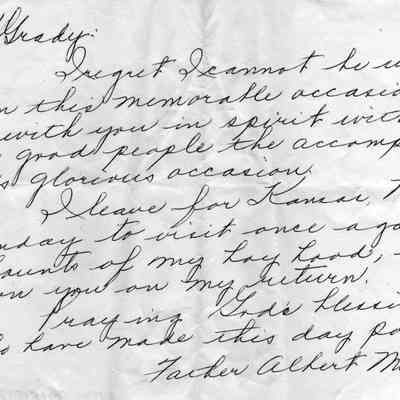 Grady:
I regret I cannot be
on this memorable occasio
with you in spirit wit
good people the accomp
s glorious occasion.
I leave for Kansas,
nday to visit once aga
haunts of my boy hood,
on you on my return.
Praying God's blessi
ho have made this day po
Father Albert M